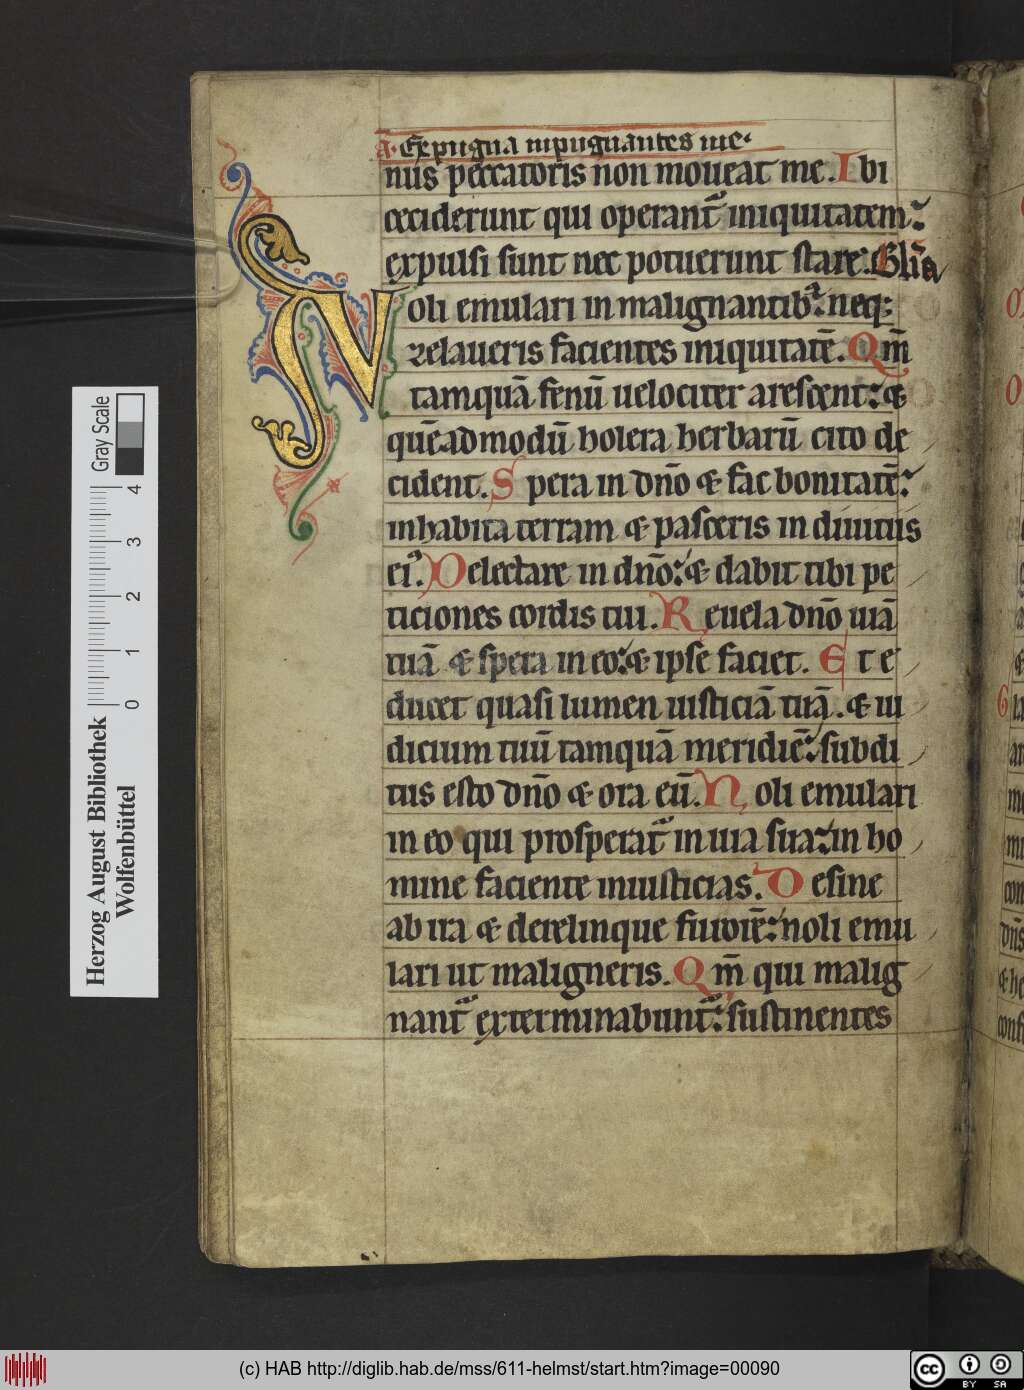 A. Expugna inpugnantes me.
nus peccatoris non moueat me. Ibi
ceciderunt qui operant᷑ iniquitatem:
expulsi sunt nec potuerunt stare. Gl̄ia
Noli emulari in malignantib᷑: neq;
zelaueris facientes iniquitatē. Qm̄
tamquā fenū uelociter arescent: &
quēadmodū holera herbarū cito de
cident. Spera in dn̄o & fac bonitatē:
inhabita terram & pasceris in diuitiis
ei᷒. Delectare in dn̄o: & dabit tibi pe
ticiones cordis tui. Reuela dn̄o uiā
tuā & spera in eo: & ipse faciet. Et e
ducet quasi lumen iusticiā tuā. & iu
dicium tuū tamquā meridiē: subdi
tus esto dn̄o & ora eū. Noli emulari
in eo qui prosperat᷑ in uia sua: in ho
mine faciente iniusticias. Desine
ab ira & derelinque furorē: noli emu
lari ut maligneris. Qm̄ qui malig
nant᷑ exterminabunt᷑: sustinentes
Herzog August Bibliothek
Wolfenbüttel
0 1 2 3 4
Gray Scale
(c) HAB http://diglib.hab.de/mss/611-helmst/start.htm?image=00090
cc BY SA